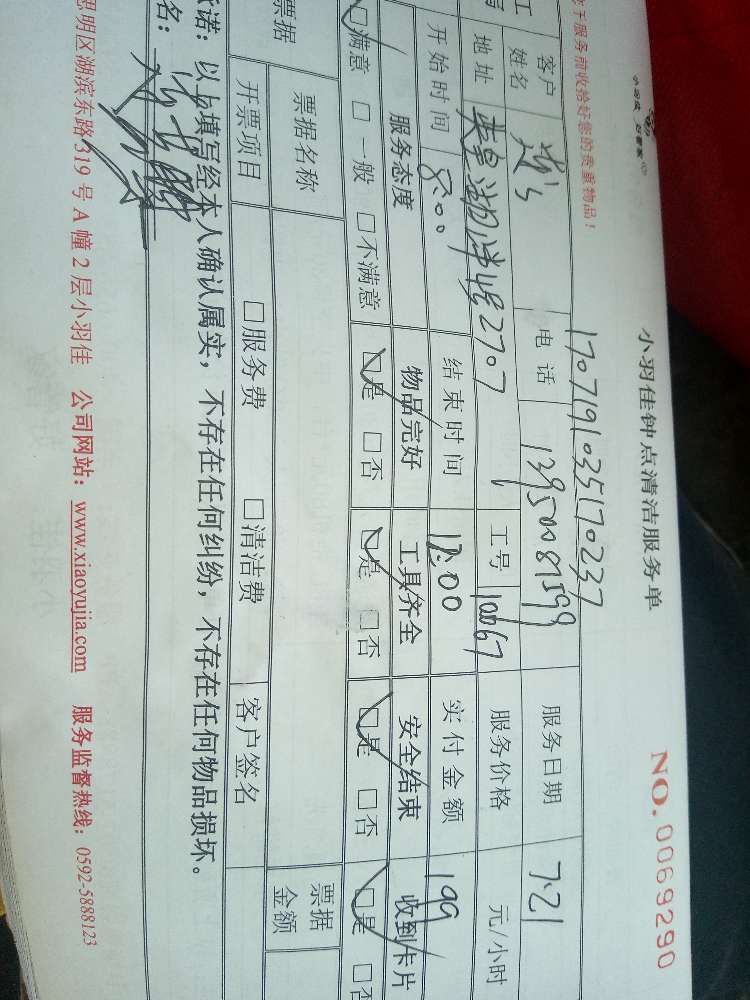 小羽佳 好管家
小羽佳钟点清洁服务单
NO.0069290
服务前收拾好您的贵重物品!
1707191035170237
客户
姓名
电话
13950087599
服务日期
7.21
地址
2707
工号
10067
服务价格
元/小时
开始时间
8:00
结束时间
12:00
实付金额
199
服务态度
物品完好
工具齐全
安全结束
收到卡片
□满意 □一般 □不满意
□是 □否
□是 □否
□是 □否
□是 □否
票据
票据名称
票据
金额
开票项目
□服务费 □清洁费
客户签名
诺:以上填写经本人确认属实,不存在任何纠纷,不存在任何物品损坏。
名:
思明区湖滨东路319号A幢2层小羽佳 公司网站:www.xiaoyujia.com 服务监督热线:0592-5888123